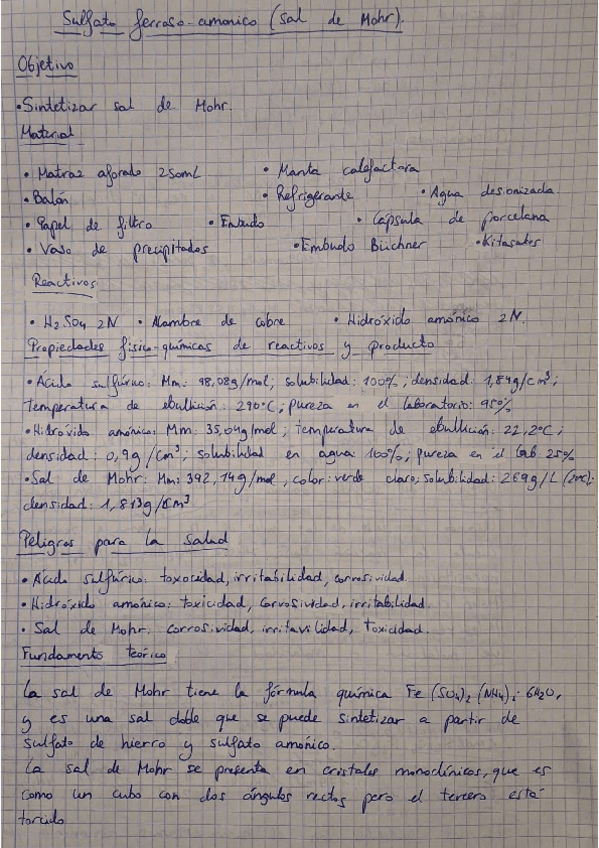 Sulfato ferroso-amónico (sal de Mohr).
Objetivo
• Sintetizar sal de Mohr.
Material
• Matraz aforado 250mL • Manta calefactora
• Balón • Refrigerante • Agua desionizada
• Papel de filtro • Embudo • Cápsula de porcelana
• Vaso de precipitados • Embudo Büchner • Kitasatos
Reactivos
• H2SO4 2N • Alambre de cobre • Hidróxido amónico 2N.
Propiedades físico-químicas de reactivos y producto
• Ácido sulfúrico: Mm: 98,08g/mol; solubilidad: 100%; densidad: 1,84g/cm³;
Temperatura de ebullición: 290°C; pureza en el laboratorio: 95%
• Hidróxido amónico: Mm: 35,04g/mol; temperatura de ebullición: 22,2°C;
densidad: 0,9g/cm³; solubilidad en agua: 100%; pureza en el lab 25%
• Sal de Mohr: Mm: 392,14g/mol, color: verde claro; solubilidad: 269g/L (20°C);
densidad: 1,813g/cm³
Peligros para la salud
• Ácido sulfúrico: toxocidad, irritabilidad, corrosividad.
• Hidróxido amónico: toxicidad, corrosividad, irritabilidad.
• Sal de Mohr: corrosividad, irritavilidad, toxicidad.
Fundamento teórico
La sal de Mohr tiene la fórmula química Fe(SO4)2(NH4)2·6H2O,
y es una sal doble que se puede sintetizar a partir de
sulfato de hierro y sulfato amónico.
La sal de Mohr se presenta en cristales monoclínicos, que es
como un cubo con dos ángulos rectos pero el tercero está
torcido